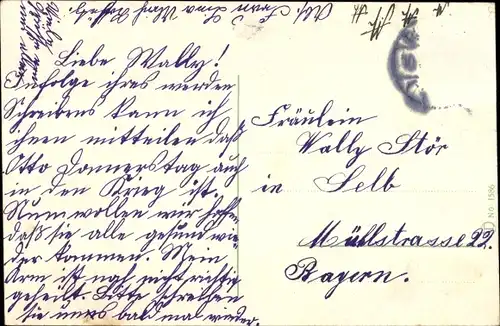 Liebe Wally!
Infolge ihres werden
Schreibens kann ich
ihnen mitteilen daß
Otto Donnerstag auch
in den Krieg ist.
Nun wollen wir hoffen
daß sie alle gesund wie-
der kommen. Mein
Arm ist noch nicht richtig
geheilt. Bitte schreiben
sie uns bald mal wieder.
Fräulein
Wally Stör
in Selb
Mühlstrasse 22.
Bayern.
No 1586